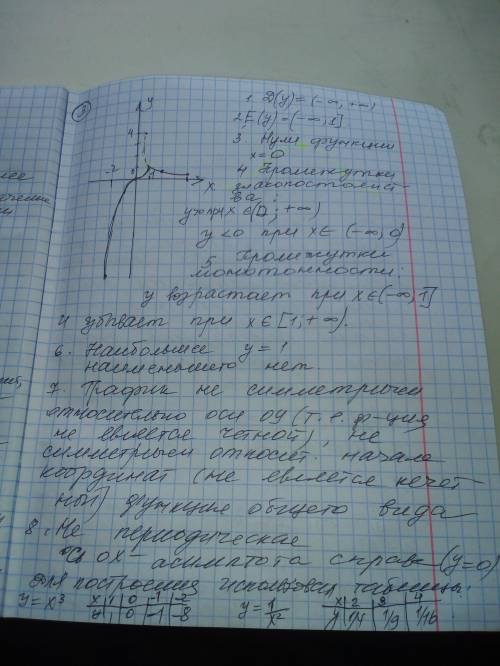 3
y
4
-2
0
1
x
1. D(y)=(-∞; +∞)
2. E(y)=(-∞; 1]
3. Нули функции
x=0
4 Промежутки
знакопостоянст-
ва:
y>0 при x∈(0; +∞)
y<0 при x∈ (-∞; 0)
5. Промижутки
монотонности:
y возрастает при x∈(-∞; 1]
и убывает при x∈[1; +∞).
6. Наибольшее y=1
наименьшего нет.
7. График не симметричен
относительно оси оу (т. е. ф-ция
не является четной), не
симметричен относит. начала
координат (не является нечет-
ной) функция общего вида
8. Не периодическая
Ось ох- асимптота справа (y=0)
Для построения использовал таблицы:
y=x³ x 1 0 -1 -2 y=1/x² x 2 3 4
y 1 0 -1 -8 y 1/4 1/9 1/16